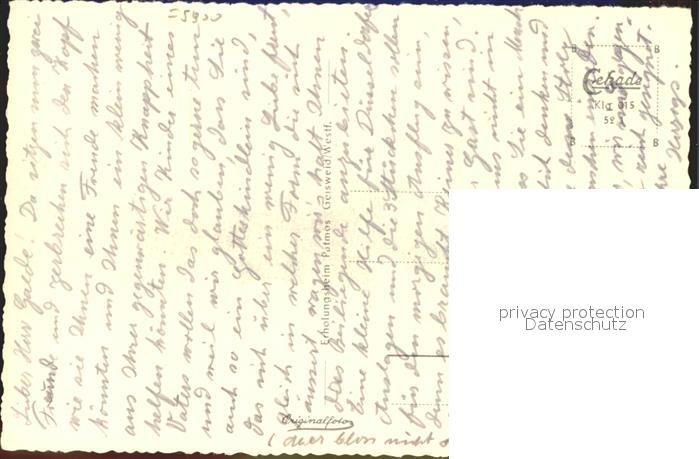 Lieber Herr Gaede! Da sitzen nun zwei
Freunde und zerbrechen sich den Kopf
wie sie Ihnen eine Freude machen
könnten und Ihnen ein klein wenig
aus Ihrer gegenwärtigen Knappheit
helfen könnten. Wir Kinder eines
Vaters wollen das doch so gerne tun
und weil wir glauben, dass Sie
auch so ein Gotteskindlein sind,
das sich über ein wenig Liebe freut,
gleich in welcher Form die sich
äussert wagen wir's halt Ihnen
das Beiliegende anzubieten.
Eine kleine Hilfe für Düsseldorfer
Auslagen und die 3 Stückchen sollen
für den morgigen Ausflug sein,
denn es braucht Kleines zu wissen,
Gast sind.
uns nicht in
Sie ein Mach
denken und
Stolz
(aber bloss nicht
=5900
Erholungsheim Patmos Geisweid/Westf.
Originalfoto
Schade
Klg 015
52 1
B
B
B
B
privacy protection
Datenschutz